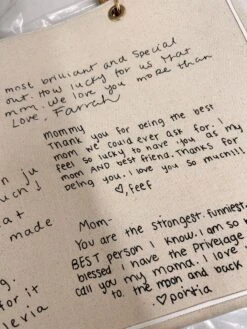 most brilliant and special
out. How lucky for us that
mm. We love you more than
Love, Farrah
mommy
Thank you for being the best
mom we could ever ask for! I
feel so lucky to have you as my
mom AND best friend. Thanks for
being you. I love you so much!!!
♡, feef
Mom-
You are the strongest. funniest.
BEST person I know. I am so
blessed i have the Privelage
call you my mama. I love
to the moon and back
♡ portia
n ju
uch]
at
made
g.
for it
leria